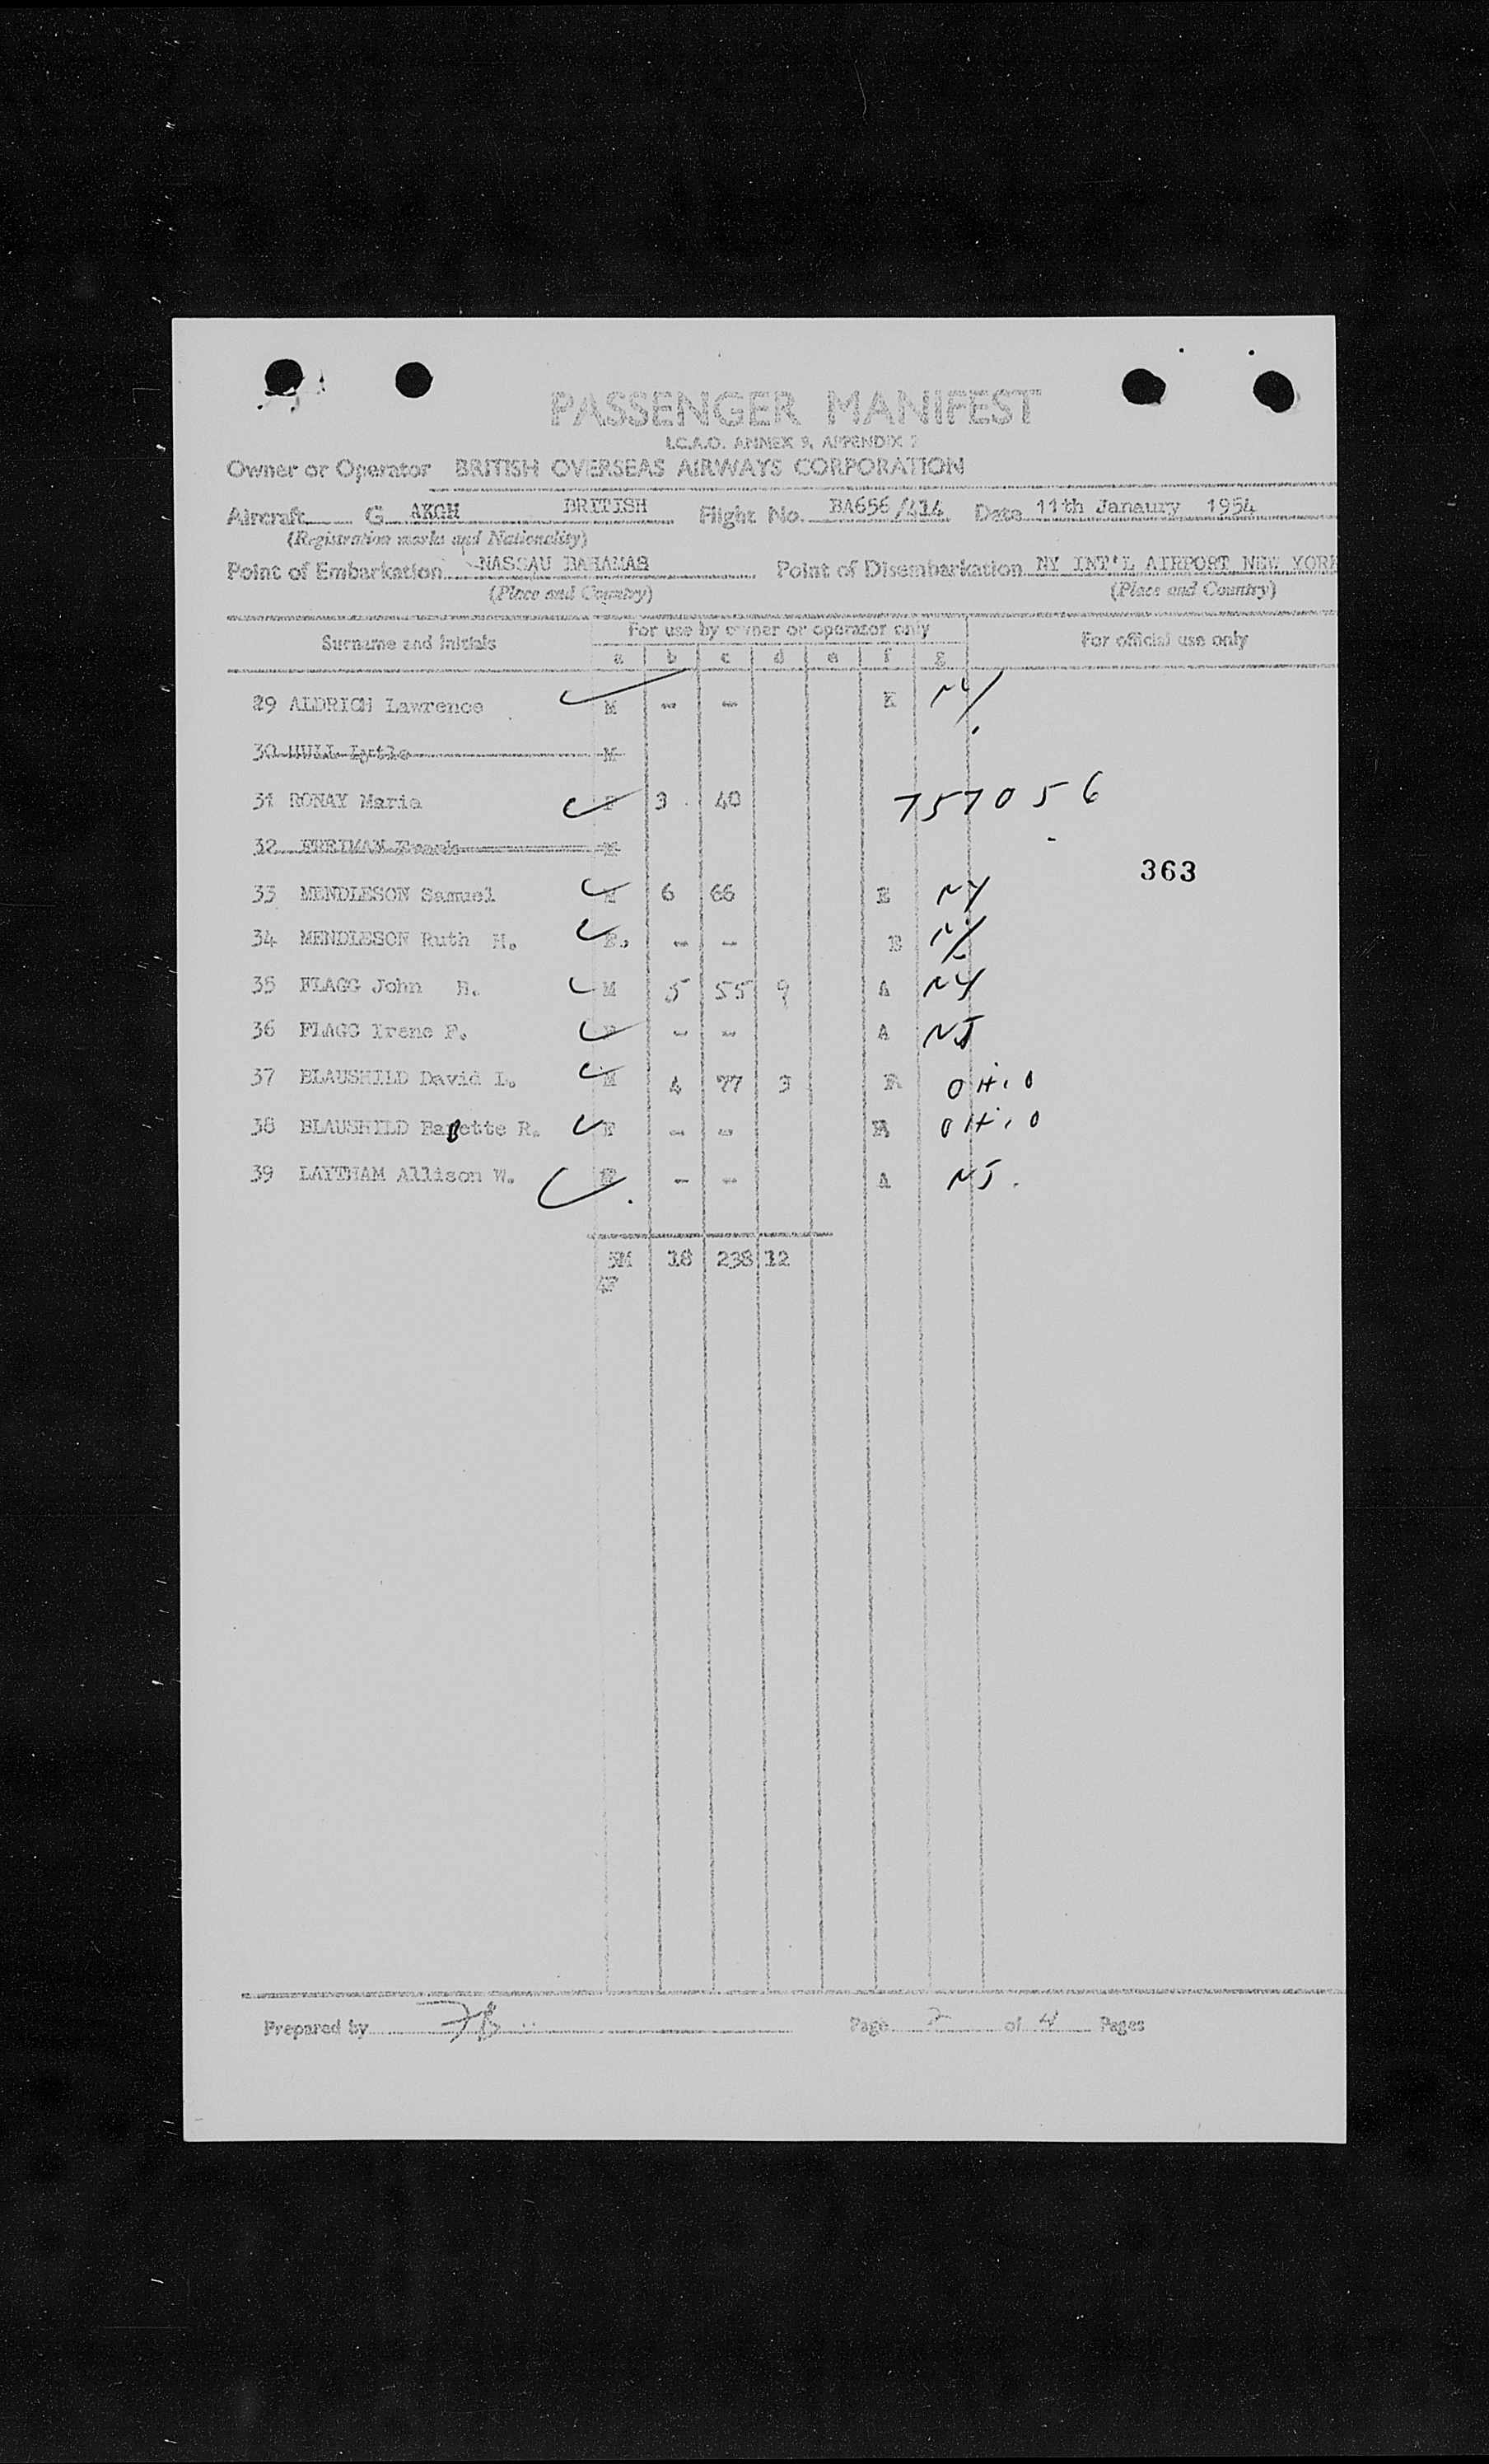 PASSENGER MANIFEST
I.C.A.O. ANNEX 9, APPENDIX 2
Owner or Operator BRITISH OVERSEAS AIRWAYS CORPORATION
Aircraft G AKGH BRITISH Flight No. BA656/414 Date 11th Janaury 1954
(Registration marks and Nationality)
Point of Embarkation NASSAU BAHAMAS Point of Disembarkation NY INT'L AIRPORT NEW YORK
(Place and Country) (Place and Country)
Surname and Initials For use by owner or operator only For official use only
a b c d e f g
29 ALDRICH Lawrence M - - E NY
30 HULL Lytle M
31 RONAY Maria F 3 40 757056
32 Frank M
363
33 MENDLESON Samuel M 6 66 E NY
34 MENDLESON Ruth H. F. - - E NY
35 FLAGG John H. M 5 55 9 A NY
36 FLAGG Irene P. F - - A NJ
37 BLAUSHILD David L. M 4 77 3 OHIO
38 BLAUSHILD Babette R. F - - OHIO
39 LAYTHAM Allison W. - - A NJ.
5M 18 238 12
4F
Prepared by Page 2 of 4 Pages